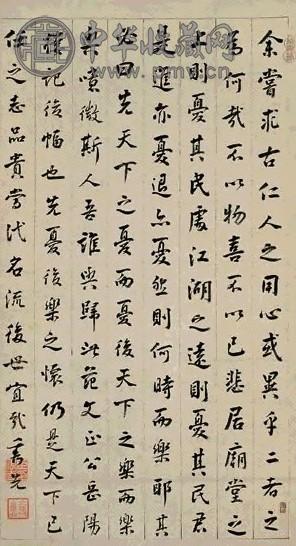 中华收藏网
余嘗求古仁人之用心或異乎二者之
為何哉不以物喜不以己悲居廟堂之
則憂其民處江湖之遠則憂其民君
是進亦憂退亦憂然則何時而樂耶其
必曰先天下之憂而憂後天下之樂而樂
乎噫微斯人吾誰與歸此范文正公岳陽
樓記後幅也先憂後樂之懷仍是天下己
任之志品貴當代名流後世宜哉